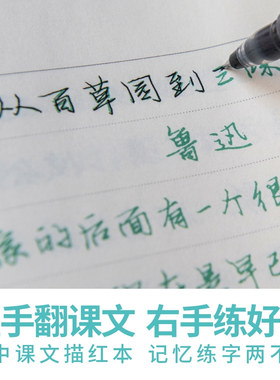 从百草园到三味
鲁迅
家的后面有一个很
手翻课文 右手练好
中课文描红本 记忆练字两不